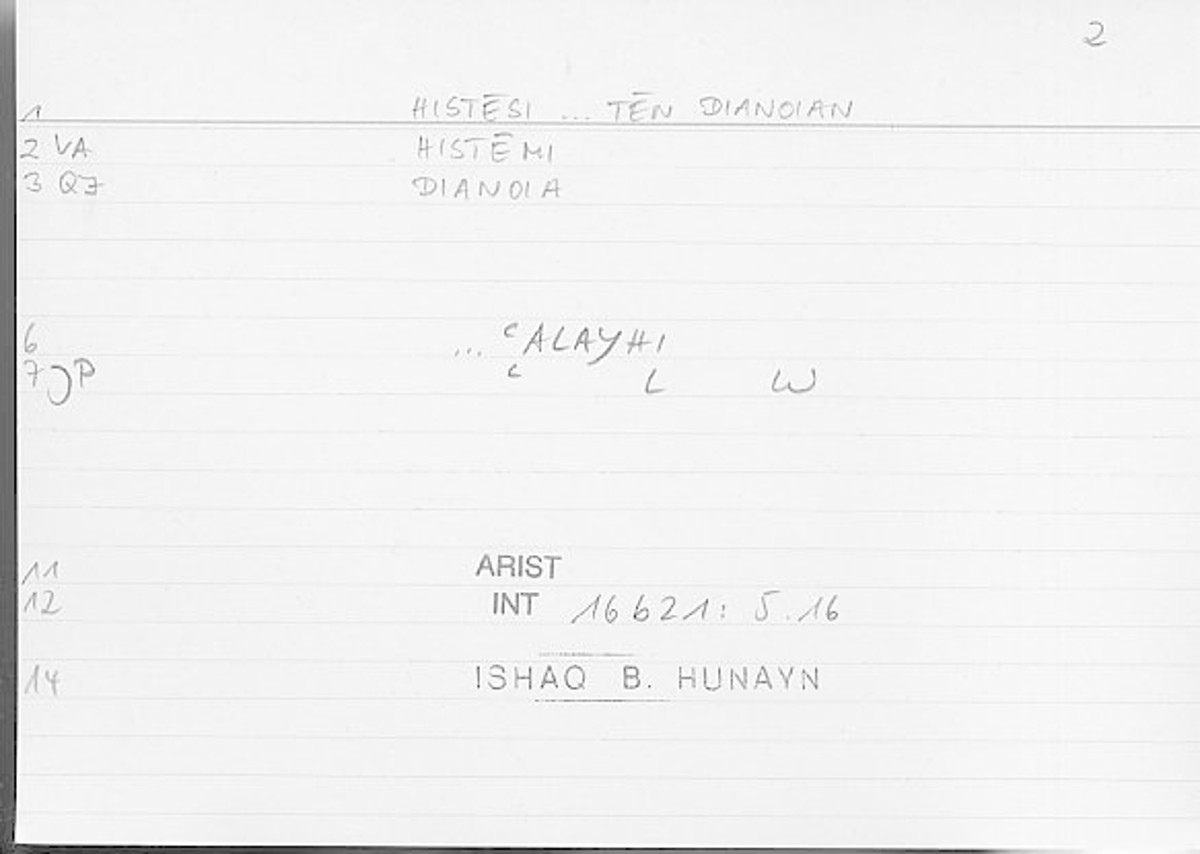 2
1 HISTĒSI ... TĒN DIANOIAN
2 VA HISTĒMI
3 QJ DIANOIA
6 ... ʿALAYHI
7 JP ʿ L W
11 ARIST
12 INT 16 b 21: 5.16
14 ISHAQ B. HUNAYN